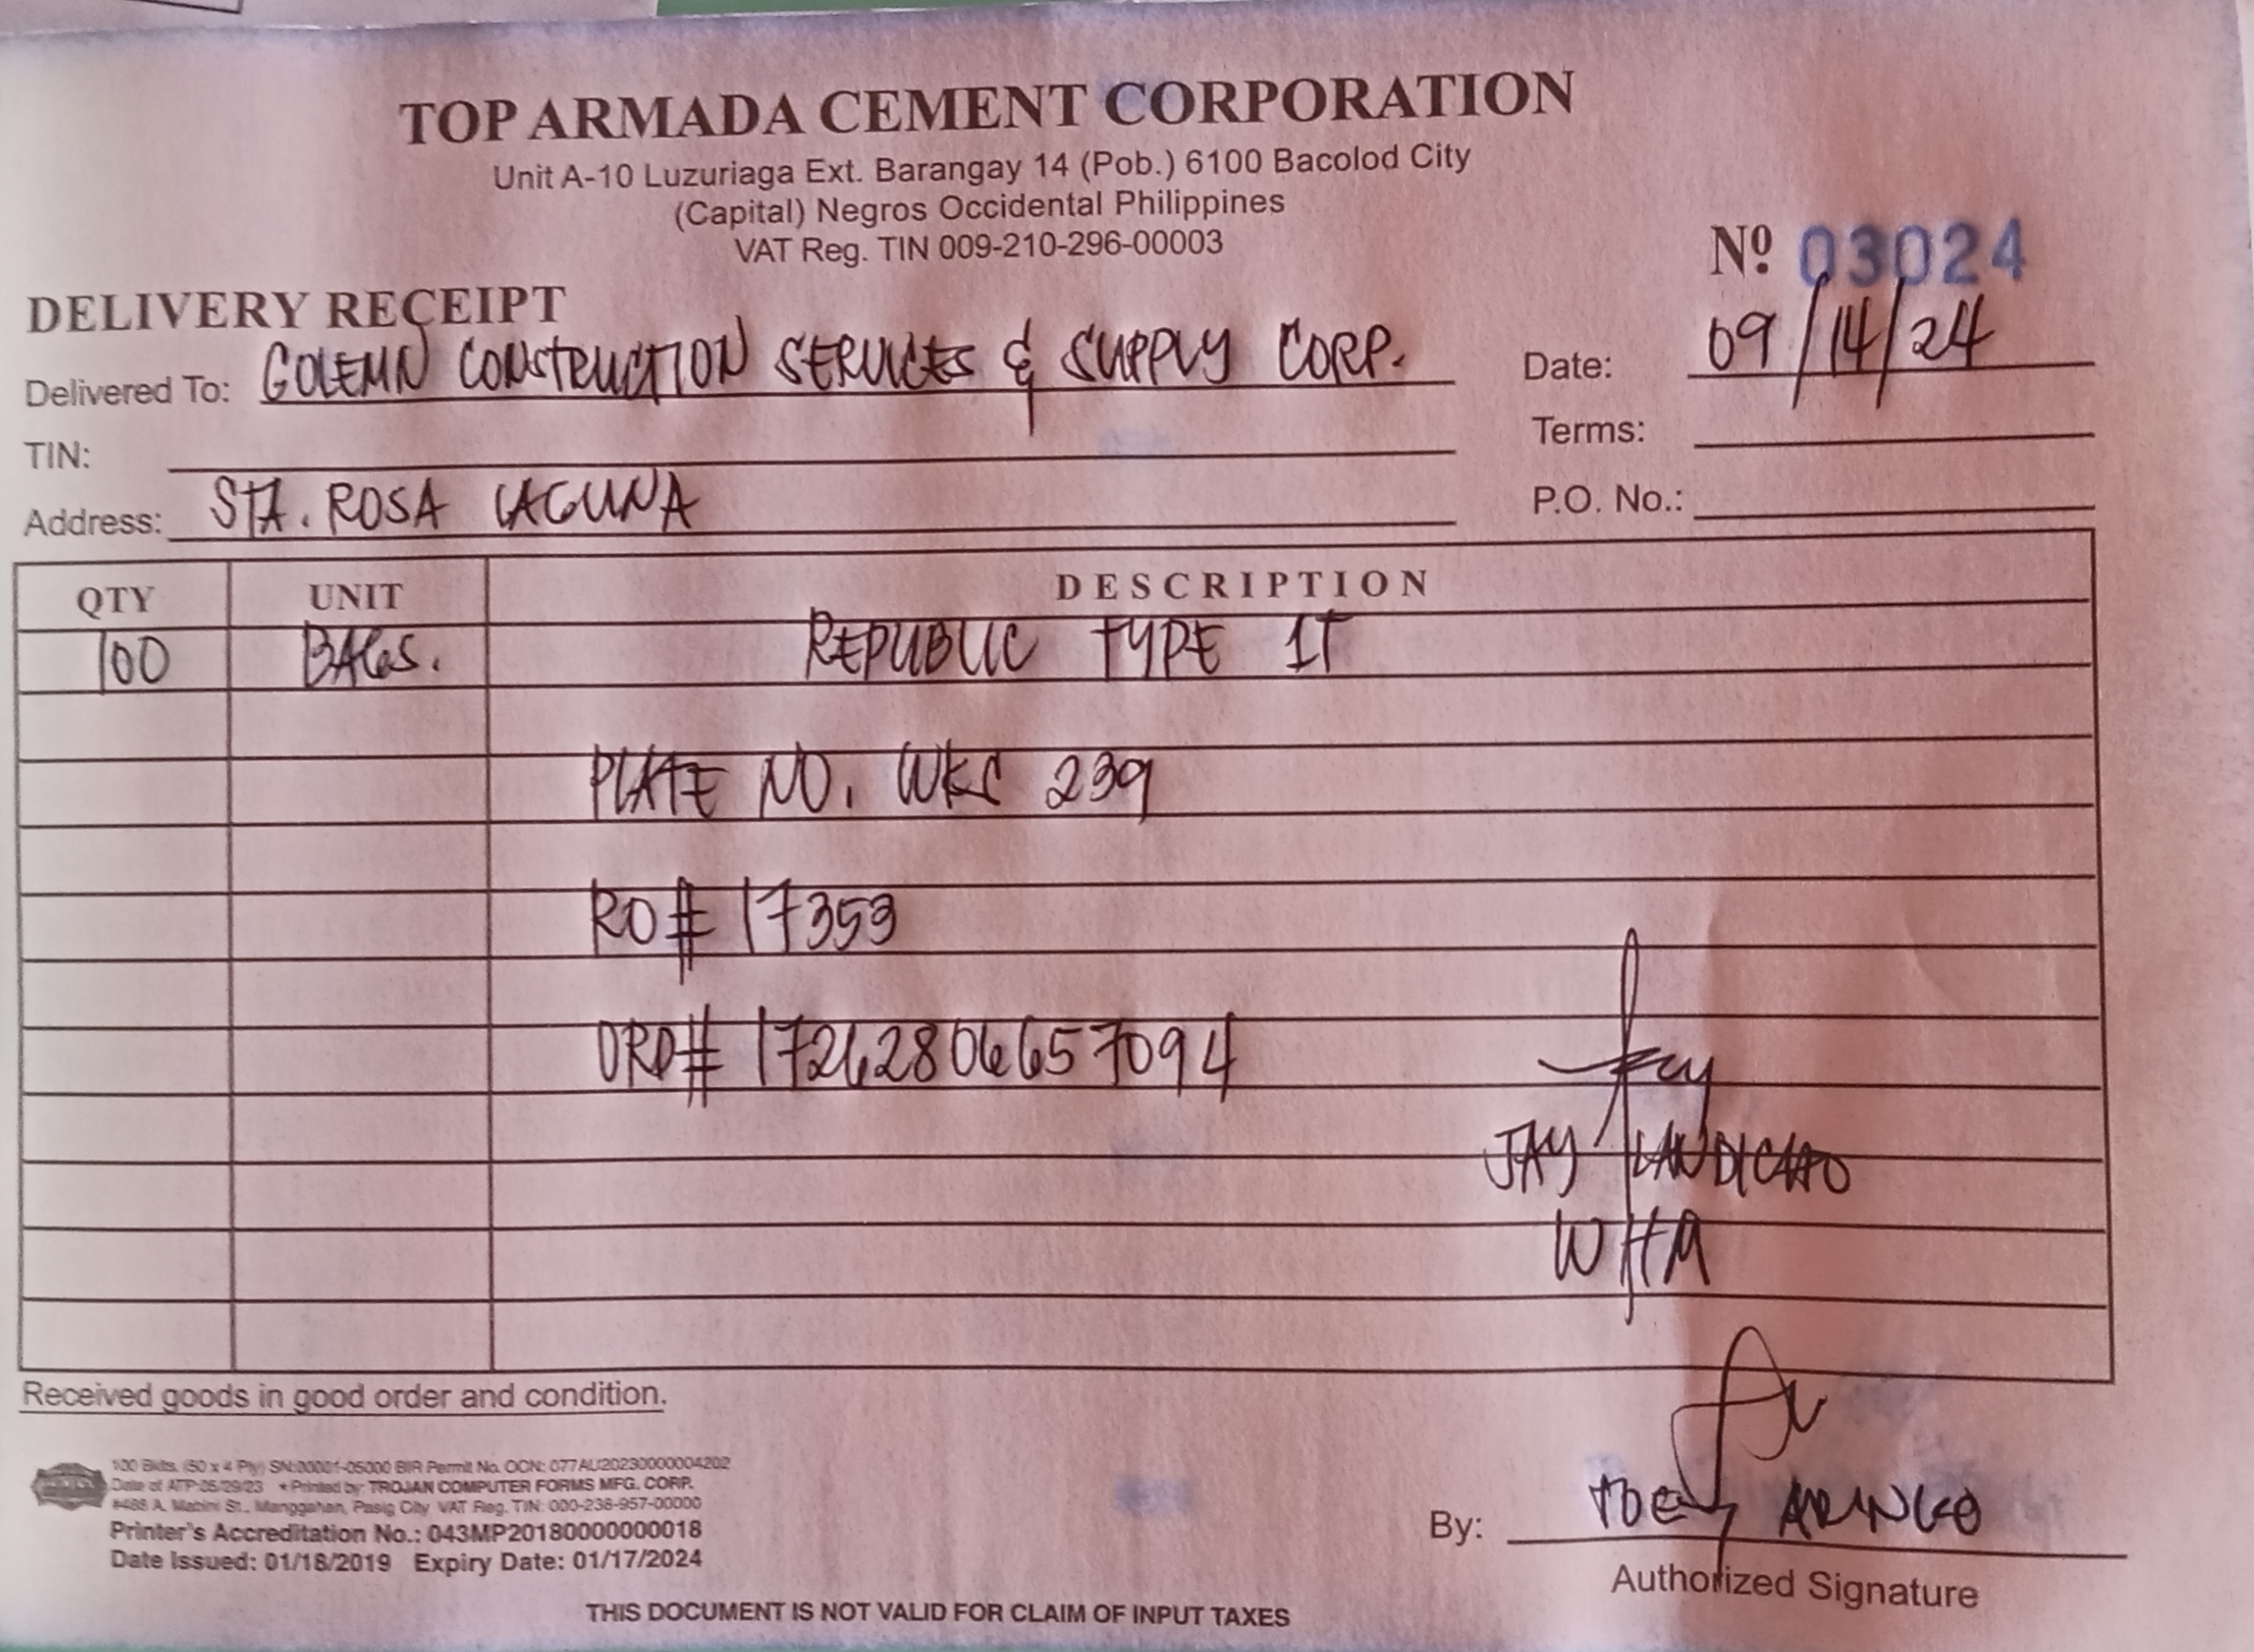 TOP ARMADA CEMENT CORPORATION
Unit A-10 Luzuriaga Ext. Barangay 14 (Pob.) 6100 Bacolod City
(Capital) Negros Occidental Philippines
VAT Reg. TIN 009-210-296-00003
Nº 03024
DELIVERY RECEIPT
Delivered To: GOLEMN CONSTRUCTION SERVICES & SUPPLY CORP.
Date: 09/14/24
TIN:
Terms:
Address: STA. ROSA LAGUNA
P.O. No.:
QTY UNIT DESCRIPTION
100 BAGS. REPUBLIC TYPE 1T
PLATE NO. WKC 239
RO# 17353
ORD# 17262806657094
JAY LANDICHO
WHA
Received goods in good order and condition.
100 Bklts. (50 x 4 Ply) SN:00001-05000 BIR Permit No. OCN: 077AU20230000004202
Date of ATP:05/29/23 • Printed by: TROJAN COMPUTER FORMS MFG. CORP.
#488 A. Mabini St., Manggahan, Pasig City VAT Reg. TIN: 000-238-957-00000
Printer's Accreditation No.: 043MP20180000000018
Date Issued: 01/18/2019 Expiry Date: 01/17/2024
By:
Authorized Signature
THIS DOCUMENT IS NOT VALID FOR CLAIM OF INPUT TAXES